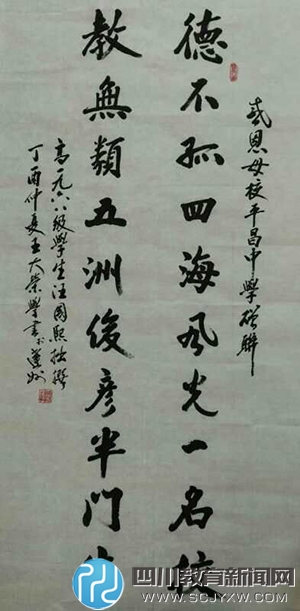 感恩母校平昌中學贈聯
德不孤四海风光一名校
教無類五洲俊彦半门
高一九六八级學生汪國熙拙撰
丁酉仲夏王大榮學書於蓬州
四川教育新闻网
WWW.SCJYXW.COM